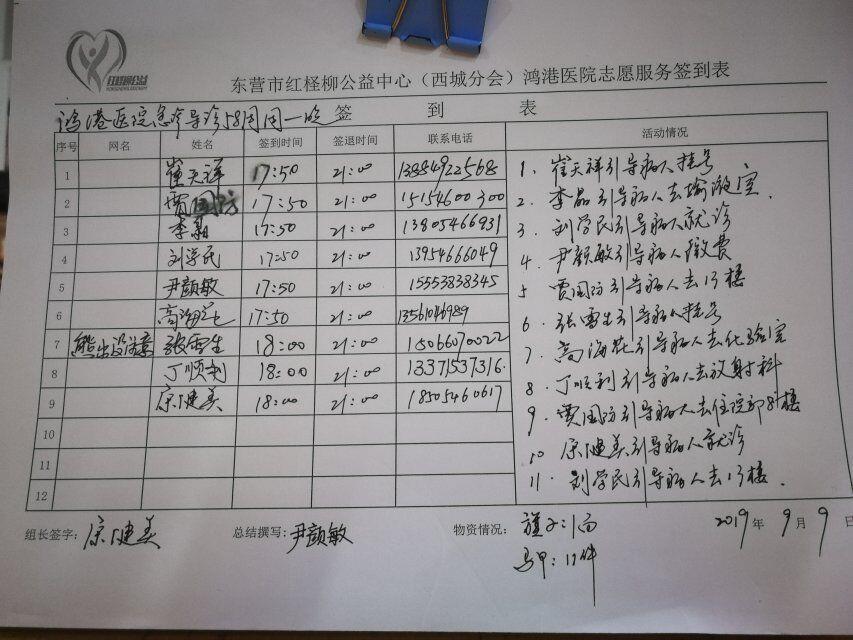 红柽柳公益
东营市红柽柳公益中心（西城分会）鸿港医院志愿服务签到表
鸿港医院急诊导诊58周周一晚 签 到 表
序号 网名 姓名 签到时间 签退时间 联系电话 活动情况
1 崔天祥 17:50 21:00 13884922568
2 贾国防 17:50 21:00 15154600300
3 李晶 17:50 21:00 13805466931
4 刘学民 17:50 21:00 13954666049
5 尹颜敏 17:50 21:00 15553838345
6 高海花 17:50 21:00 13561046989
7 熊出没注意 张雪生 18:00 21:00 15066070022
8 丁顺利 18:00 21:00 13371537316
9 原健美 18:00 21:00 18505460617
10
11
12
1. 崔天祥引导病人挂号
2. 李晶引导病人去输液室.
3. 刘学民引导病人就诊
4. 尹颜敏引导病人缴费
5 贾国防引导病人去13楼
6. 张雪生引导病人挂号
7. 高海花引导病人去化验室
8. 丁顺利引导病人去放射科
9. 贾国防引导病人去住院部8楼
10 原健美引导病人就诊
11. 刘学民引导病人去13楼.
组长签字： 原健美 总结撰写： 尹颜敏 物资情况： 旗子：1面 2019年 9月 9日
马甲：11件